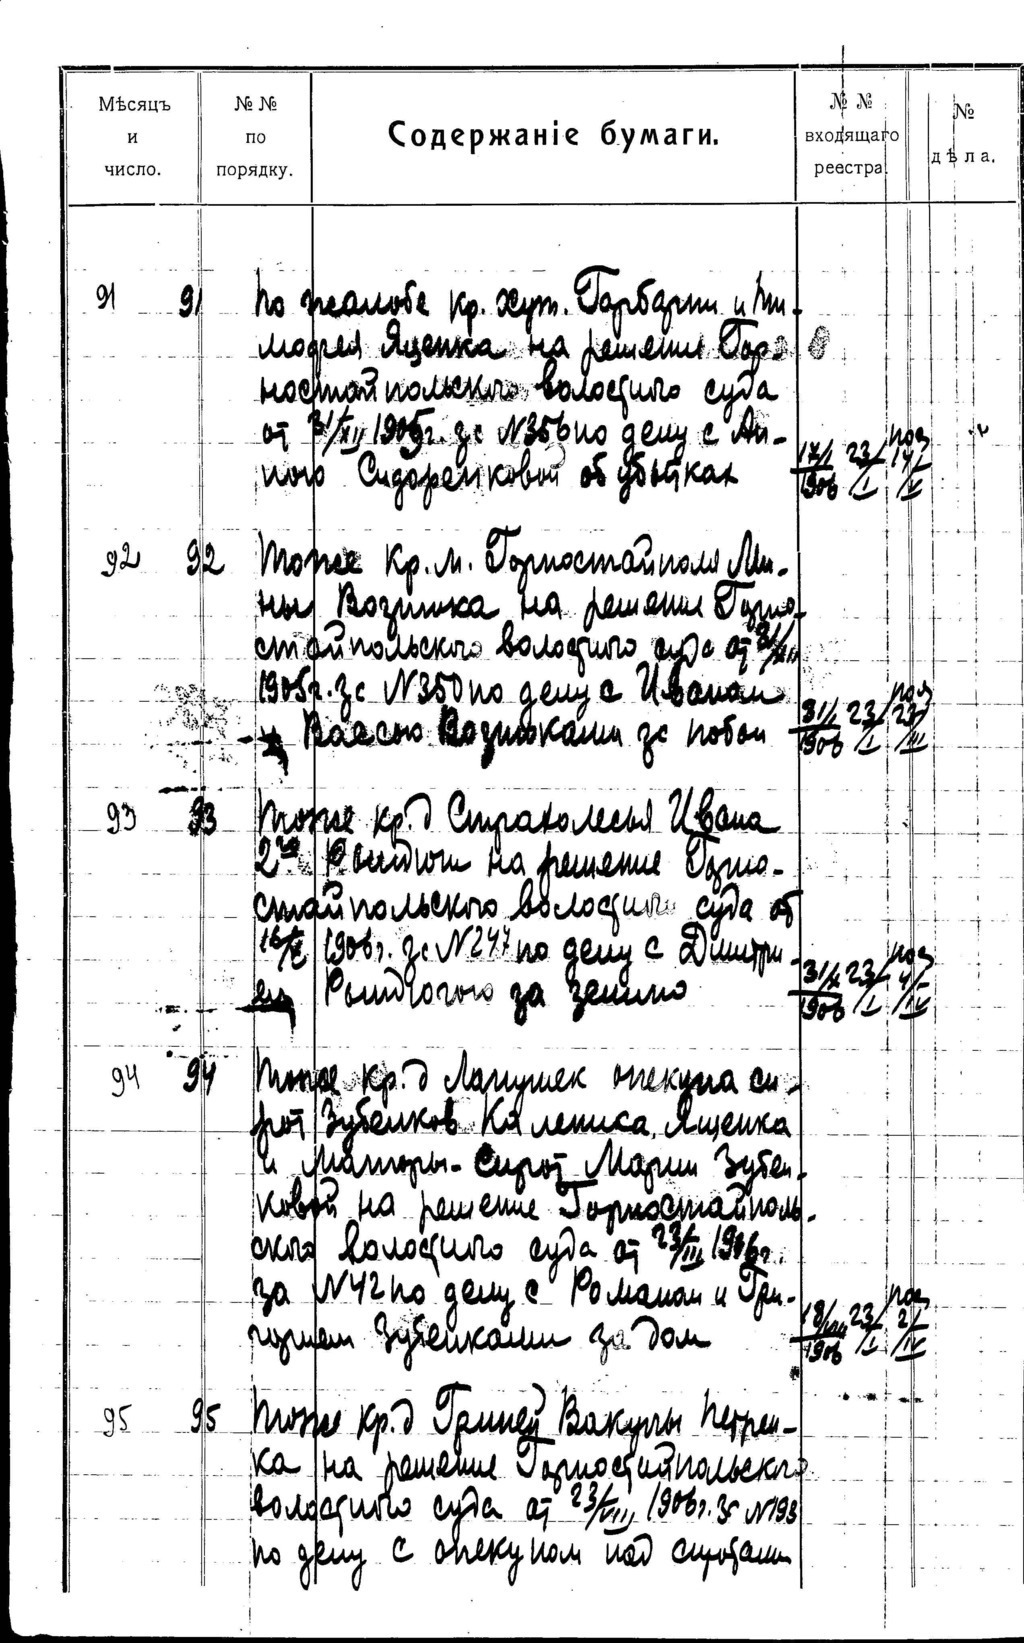 Мѣсяцъ и число.
№№ по порядку.
Содержаніе бумаги.
№№ входящаго реестра
№ дѣла.
91 91 По жалобе кр. хут. Гарбарни и Ти-
мофея Яценка на решение Гор-
ностайпольского волостного суда
от 31/XII 1905г. за №356 по делу с Ан-
ною Сидоренковой об убытках
17/I 1906 23/I 14/V
92 92 Тоже кр. м. Горностайполя
ны Возн на решение Горно-
стайпольского волостного суда от 31/XII
1905г. за №350 по делу с Иваном
и Возн за побои
31/I 1906 23/I 23/III
93 93 Тоже кр. д Страхолесья Ивана
2го на решение Горно-
стайпольского волостного суда от
16/X 1906г. за №247 по делу с Димитри-
ем за землю
31/X 1906 23/I 4/IV
94 94 Тоже кр. д Лапутек опекуна си-
рот Зубенков Ященка
и Матери- Сирот Марии Зубен-
ковой на решение Горностайполь-
ского волостного суда от 23/III 1906г.
за №42 по делу с Романом и Гри-
горием Зубенками за дом
18/VIII 1906 23/I 2/IV
95 95 Тоже кр. д Вакулы Петрен-
ка на решение Горностайпольского
волостного суда от 23/VIII 1906г. за №193
по делу с опекуном над сиротами